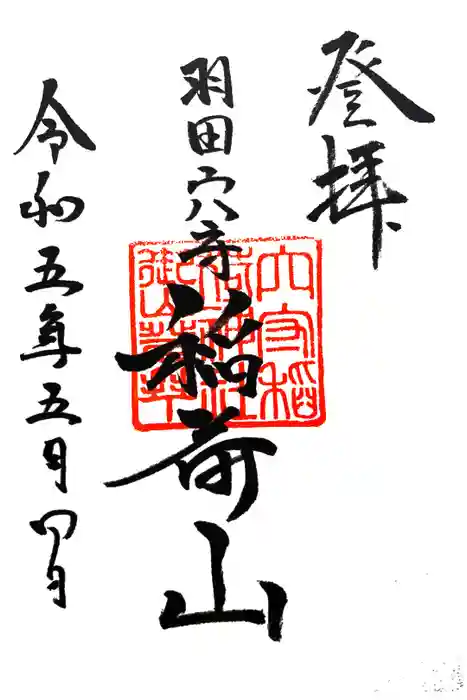 登拝
羽田穴守
稲荷山
令和五年五月四日
穴守稲
荷神社